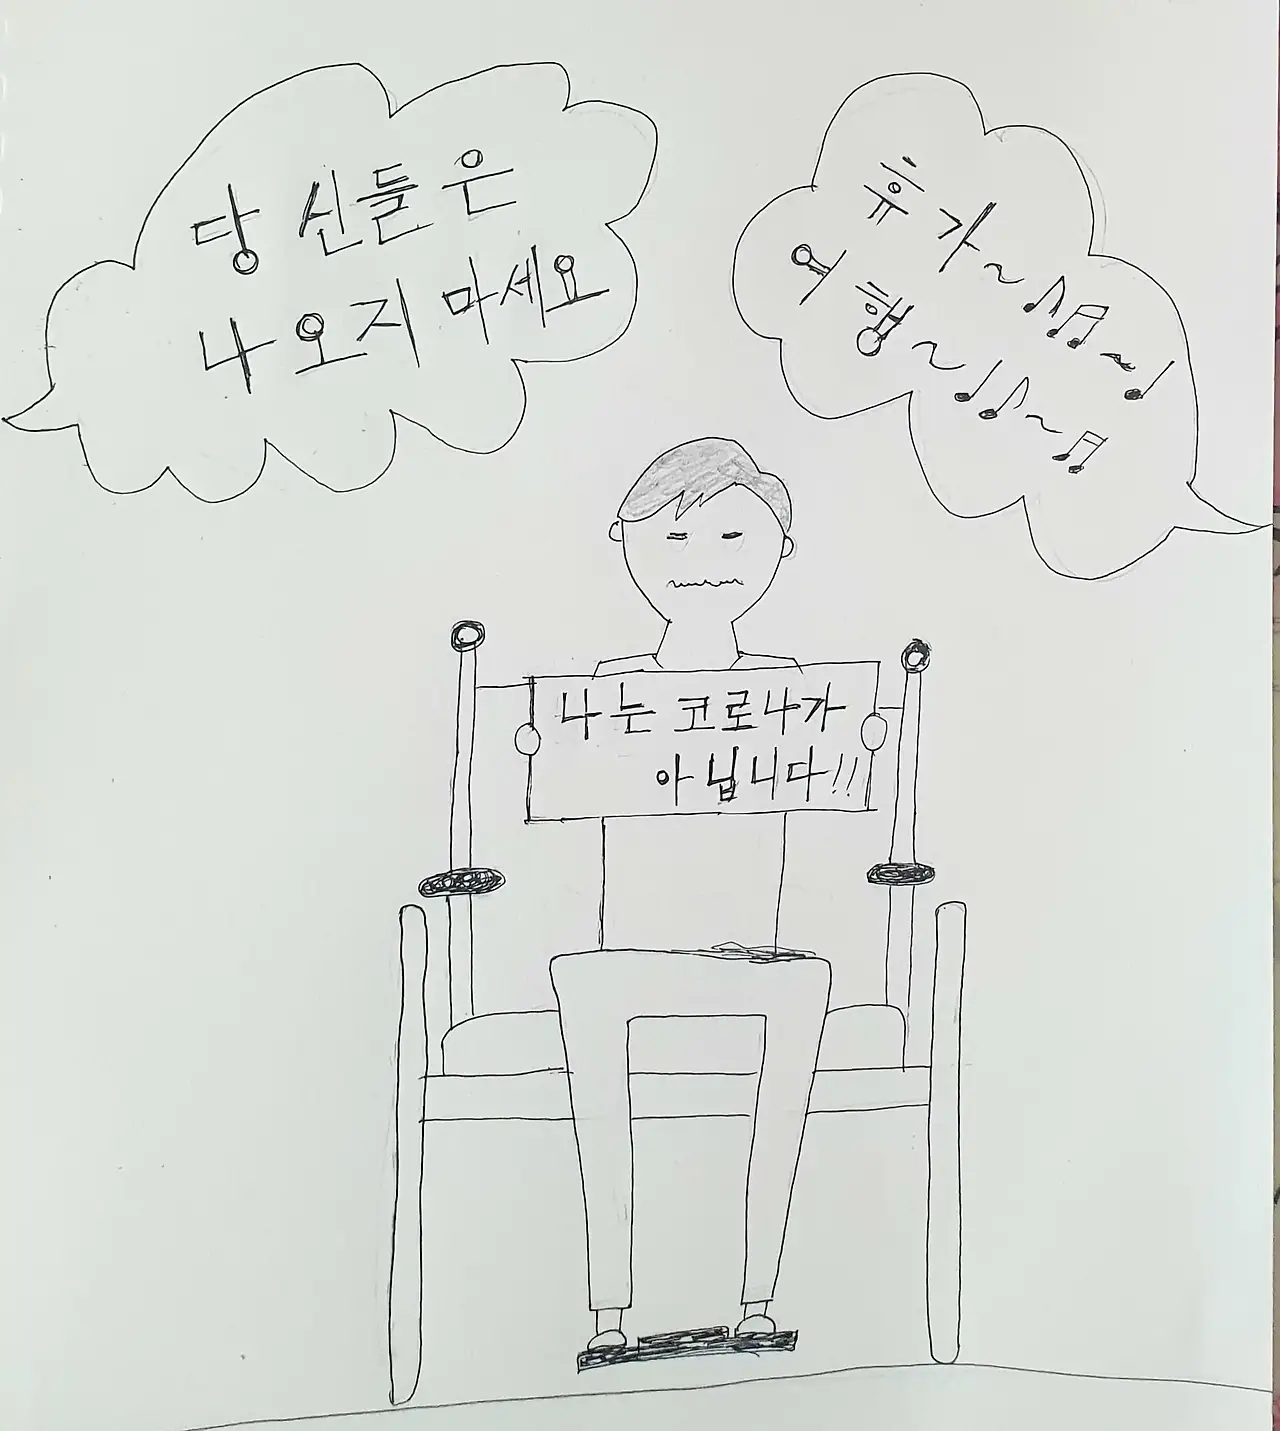 당신들은
나오지 마세요
휴가~♪♫~♩
여행~♩♪~♫
나는 코로나가
아닙니다!!